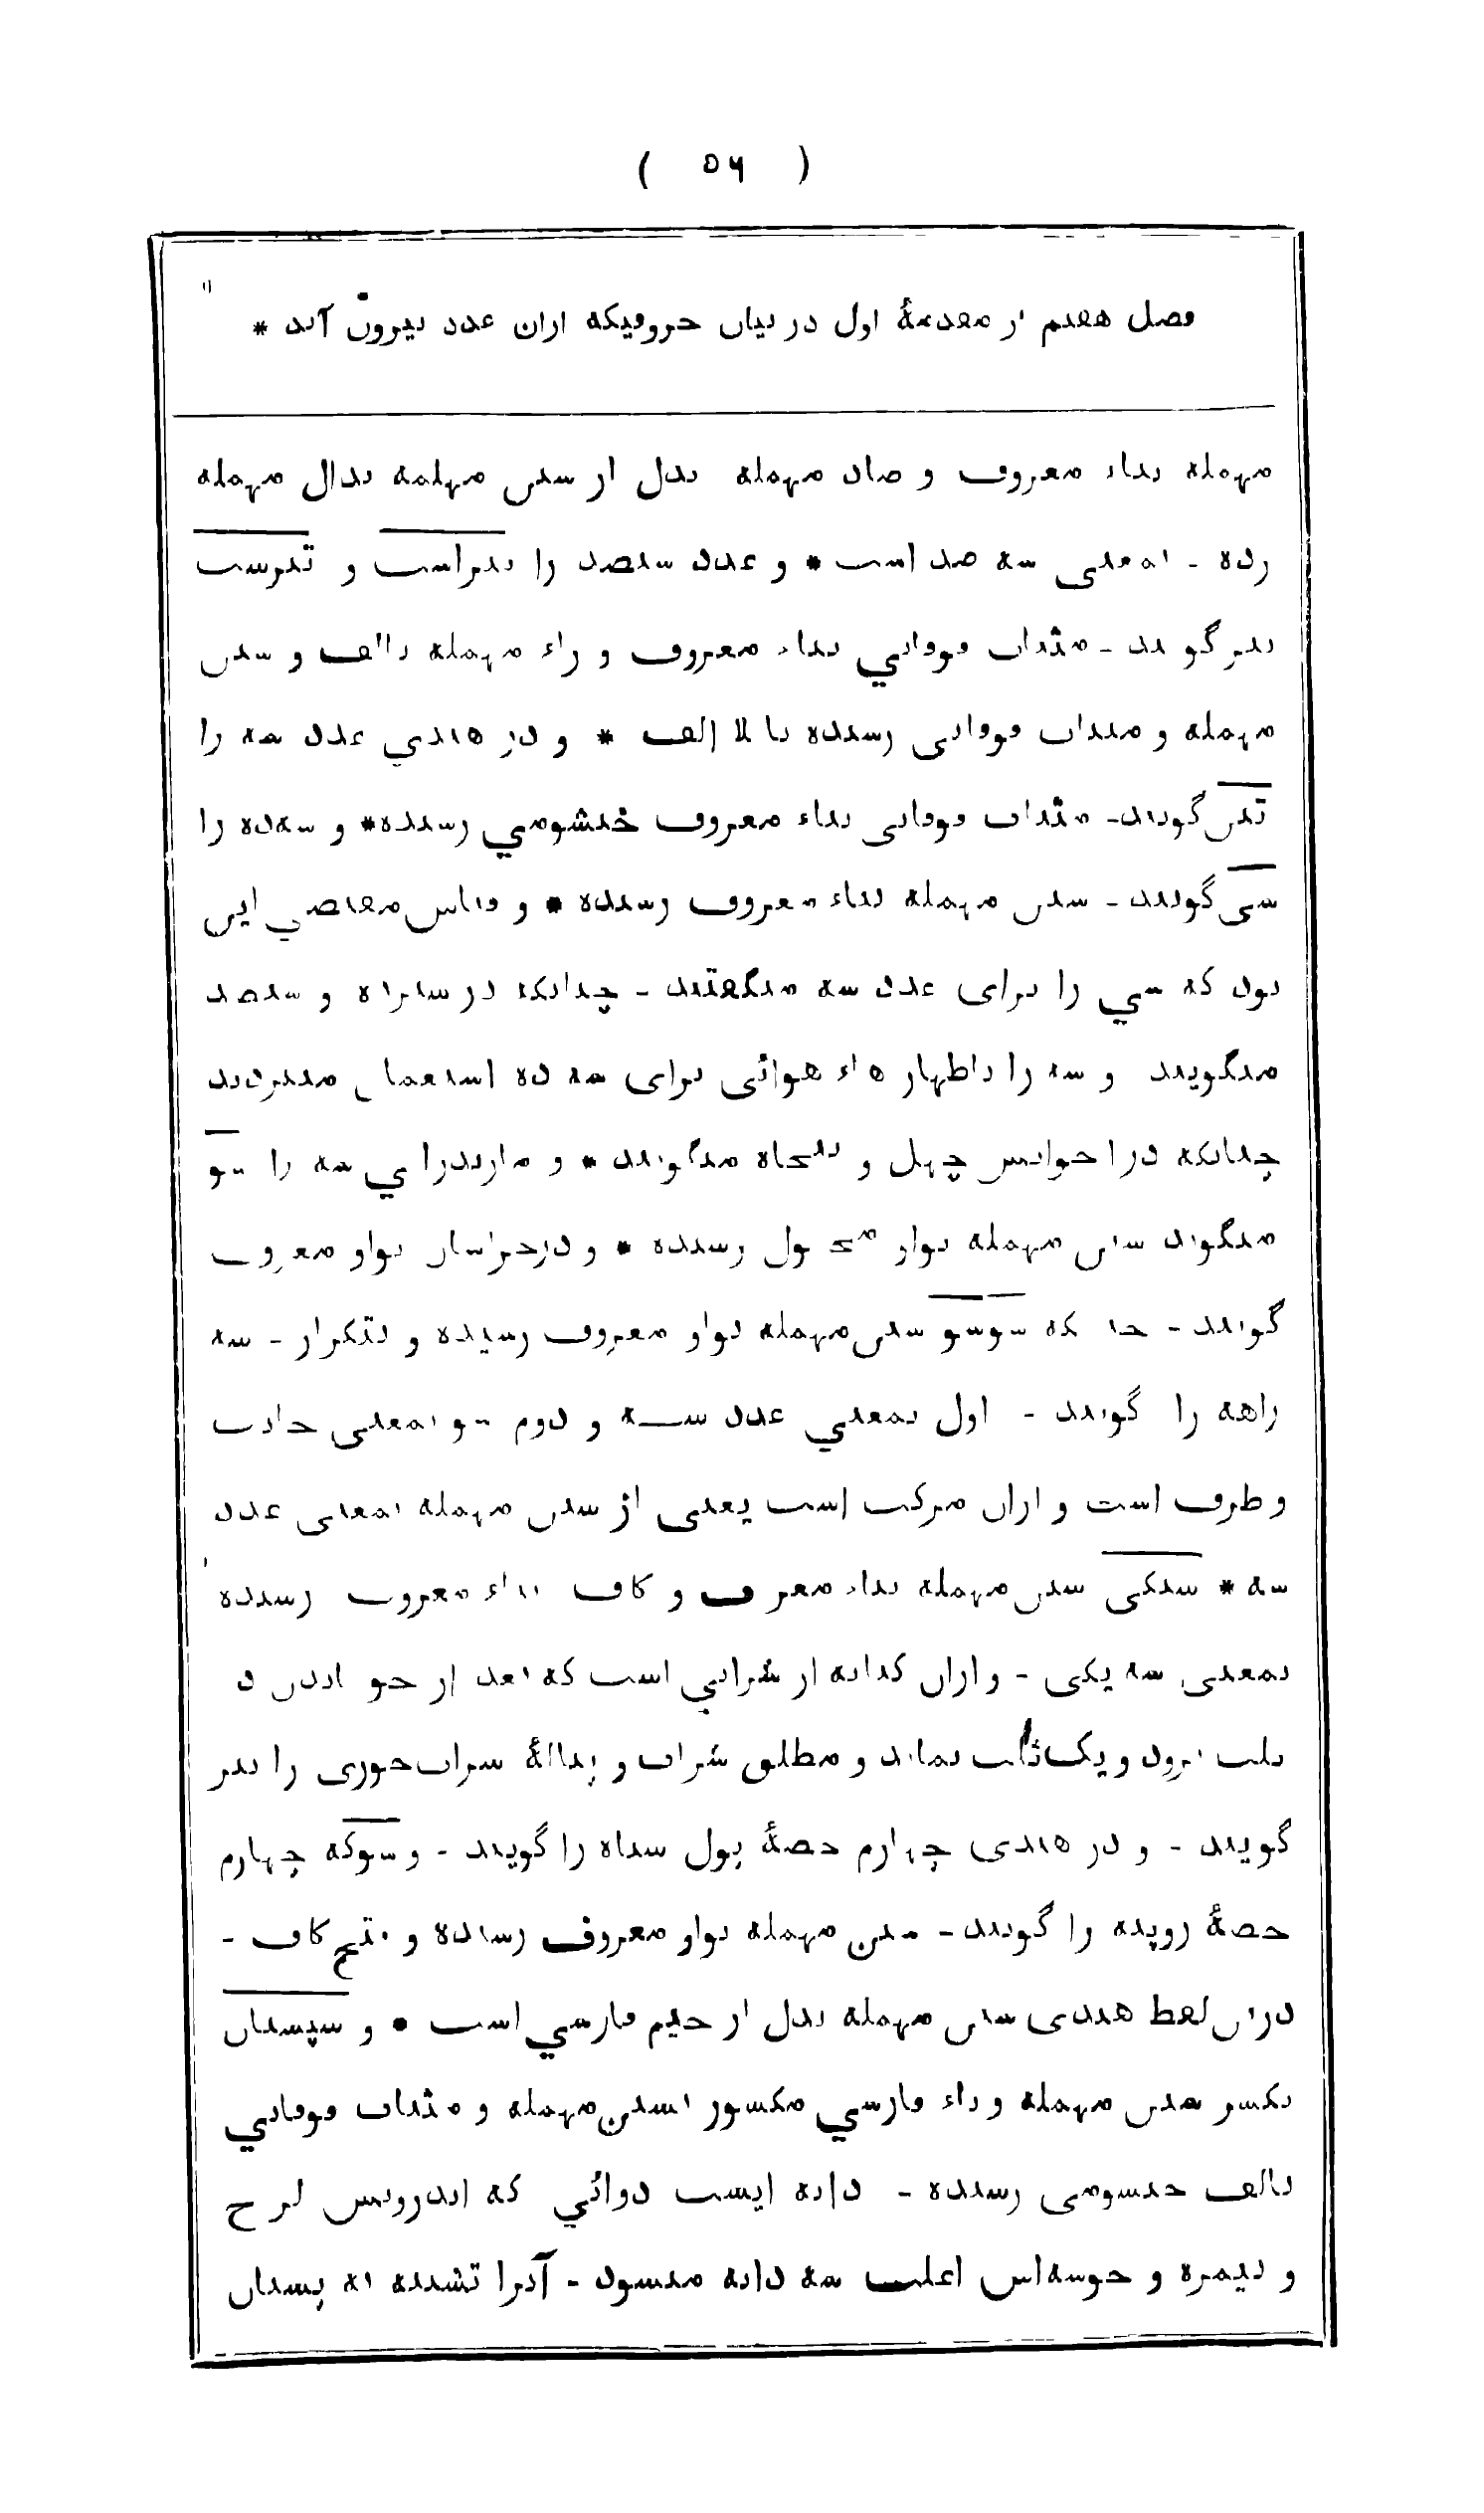 ( ۵۶ )
فصل هفدم از مقدمهٔ اول در بیان حروفیکه ازان عدد بیرون آید *
مهمله بیاء معروف و صاد مهمله بدل از سین مهلمه بدال مهمله
زده - بمعنی سه صد است * و عدد سیصد را تیراست و تیرست
نیز گویند - مثناة فوقانی بیاء معروف و راء مهمله بالف و سین
مهمله و مثناة فوقانی رسیده با لا الف * و در هندی عدد سه را
تین گویند - مثناة فوقانی بیاء معروف خیشومی رسیده * و سه ده را
سی گویند - سین مهمله بیاء معروف رسیده * و قیاس مقتضی این
بود که سی را برای عدد سه میگفتند - چنانکه در سیزده و سیصد
میگویند و سه را باظهار هاء هوائی برای سه ده استعمال میکردند
چنانکه در اخوانش چهل و پنجاه میگویند * و مازندرانی سه را سو
میگوید سین مهمله بواو مجهول رسیده * و در خراسان بواو معروف
گویند - چنانکه سوسو سین مهمله بواو معروف رسیده و بتکرار - سه
راهه را گویند - اول بمعنی عدد سه و دوم سو بمعنی جانب
و طرف است و ازان مرکب است یعنی از سین مهمله بمعنی عدد
سه * سیکی سین مهمله بیاء معروف و کاف بیاء معروف رسیده
بمعنی سه یکی - و ازان کنایه از شرابی است که بعد از جوشانیدن دو
ثلث برود و یک ثلث بماند و مطلق شراب و پیالهٔ شراب خوری را نیز
گویند - و در هندی چهارم حصهٔ پول سیاه را گویند - و سوکه چهارم
حصهٔ روپیه را گویند - سین مهمله بواو معروف رسیده و بفتح کاف -
درین لفظ هندی سین مهمله بدل از جیم فارسی است * و سپستان
بکسر سین مهمله و باء فارسی مکسور بسین مهمله و مثناة فوقانی
بالف خیشومی رسیده - دانه ایست دوائی که اندرونش لزج
و نیمزه و خوشه‌اش اغلب سه دانه میشود - آنرا تشبیه به پستان